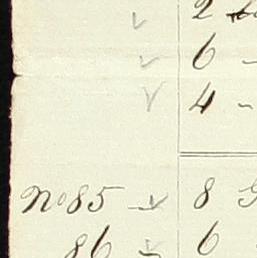 2
6 -
4 -
No 85 - 8
86 - 6